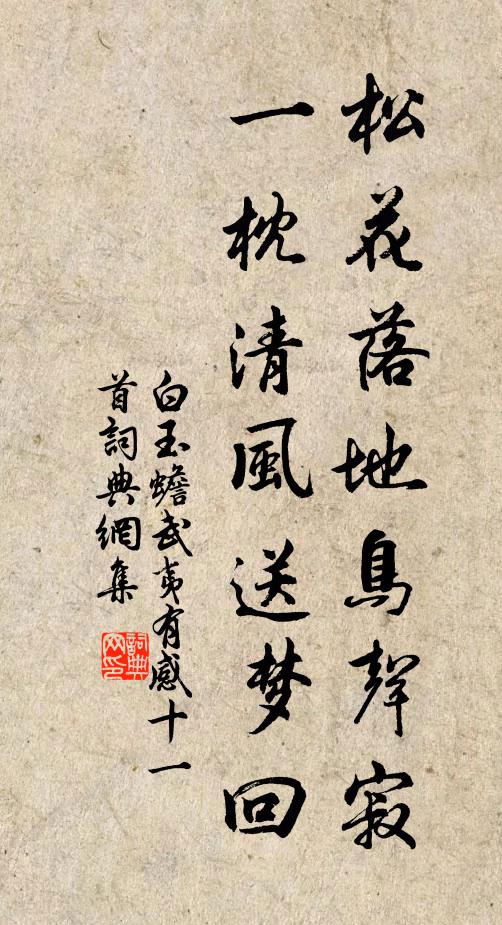 松花落地鳥聲寂
一枕清風送梦回
白玉蟾武夷有感十一
首詞典網集
詞典
网印